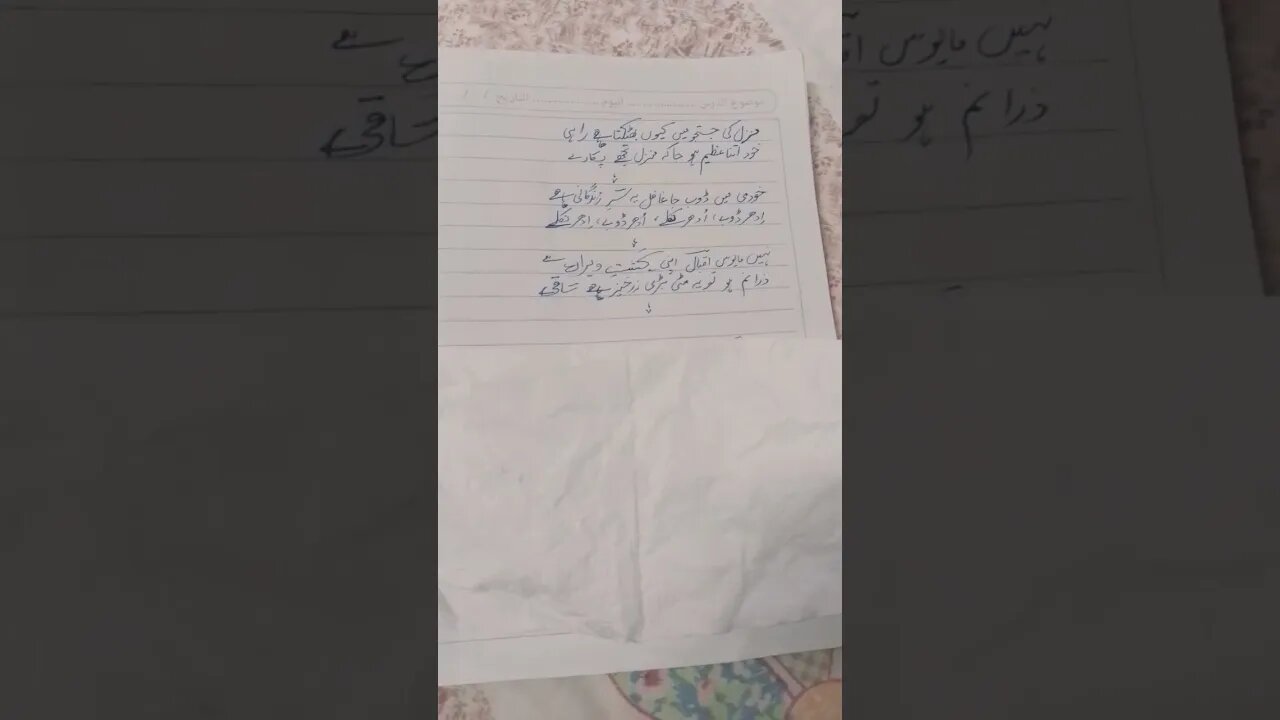 موضوع الدرس ............... اليوم ............... التاريخ / /
منزل کی جستجو میں کیوں بھٹکتا ہے راہی
خود اتنا عظیم ہو جا کہ منزل تجھے پکارے
خودی میں ڈوب جا غافل یہ سّرِ زندگانی ہے
اِدھر ڈوبے، اُدھر نکلے، اُدھر ڈوبے، اِدھر نکلے
نہیں مایوس اقبال اپنی کشتِ ویراں سے
ذرا نم ہو تو یہ مٹی بڑی زرخیز ہے ساقی